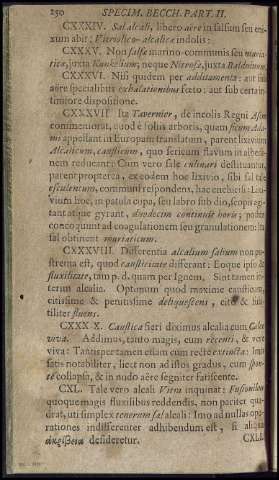 250 SPECIM. BECCH. PART. II.
CXXXIV. Sal alcali, libero aëre in salsum seu eni-
xum abit; Vitriolico-alcalicæ indolis:
CXXXV. Non salsæ marino-communis seu muria-
ticæ, juxta Kunkelium; neque Nitrosæ, juxta Balduinum.
CXXXVI. Nisi quidem per additamenta: aut sub
aëre specialibus exhalationibus fœto: aut sub certa in-
timiore dispositione.
CXXXVII. Ita Tavernier, de incolis Regni
commemorat, quod è foliis arboris, quam ficum Ada-
mi appellant in Europam translatum, parent lixivium
Alcalicum, causticum, quo sericum flavum in albedi-
nem reducant: Cum vero sale culinari destituantur,
parent propterea, ex eodem hoc lixivio, sibi sal tale
esculentum, communi respondens, hac encheiresi: Lixi-
vium hoc, in patula cupa, seu labro sub dio, scopis agi-
tant atque gyrant, duodecim continuis horis; postea
concoquunt ad coagulationem seu granulationem: ita
sal obtinent muriaticum.
CXXXVIII. Differentia alcalium salium non po-
strema est, quod causticitate differant: Eoque ipso &
fluxilitate, tam p. d. quam per Ignem. Sint tamen in-
terim alcalia. Optimum quod maxime causticum,
citissime & penitissime deliquescens, cito & sub-
tiliter fluens.
CXXXIX. Caustica fieri diximus alcalia cum Calce
viva. Addimus, tanto magis, cum recenti, & vere
viva: Tantisper tamen etiam cum recte extincta: Imo
satis notabiliter, licet non ad istos gradus, cum spon-
te collapsa, & in nudo aëre segniter fatiscente.
CXL. Tale vero alcali Vitra inquinat: Fusionibus
quoque magis fluxilibus reddendis, non pariter qua-
drat, uti simplex tenerum sal alcali: Imo ad nullas ope-
rationes indifferenter adhibendum est, si aliqua
ἀκρίβεια desideretur. CXLI.